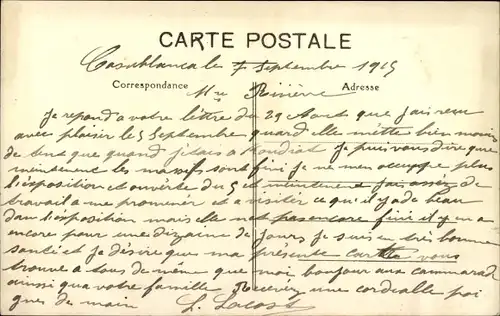 CARTE POSTALE
Casablanca le 7 Septembre 1915
Correspondance
Adresse
Mr Rivière
Je repond a votre lettre du 29 Aout que jais reçu
avec plaisir le 5 Septembre quand elle mette bien moins
de tent que quand j'étais a Je puis vous dire que
maintenent les massifs sont fini je ne men occuppe plus
l'exposition et ouverte du 5 et maintenent jais assez de
travail a me promener et a visiter ce qu'il y a de beau
dans l'exposition mais elle net pas encore fini il y en a
encore pour une dizaine de Jours Je suis en très bonne
santé et je désire que ma présente carte vous
trouve a tous de même que moi bonjour aux cammarad
ainsi qua votre famille Recevez une cordialle poi
gnes de main L. Lacost